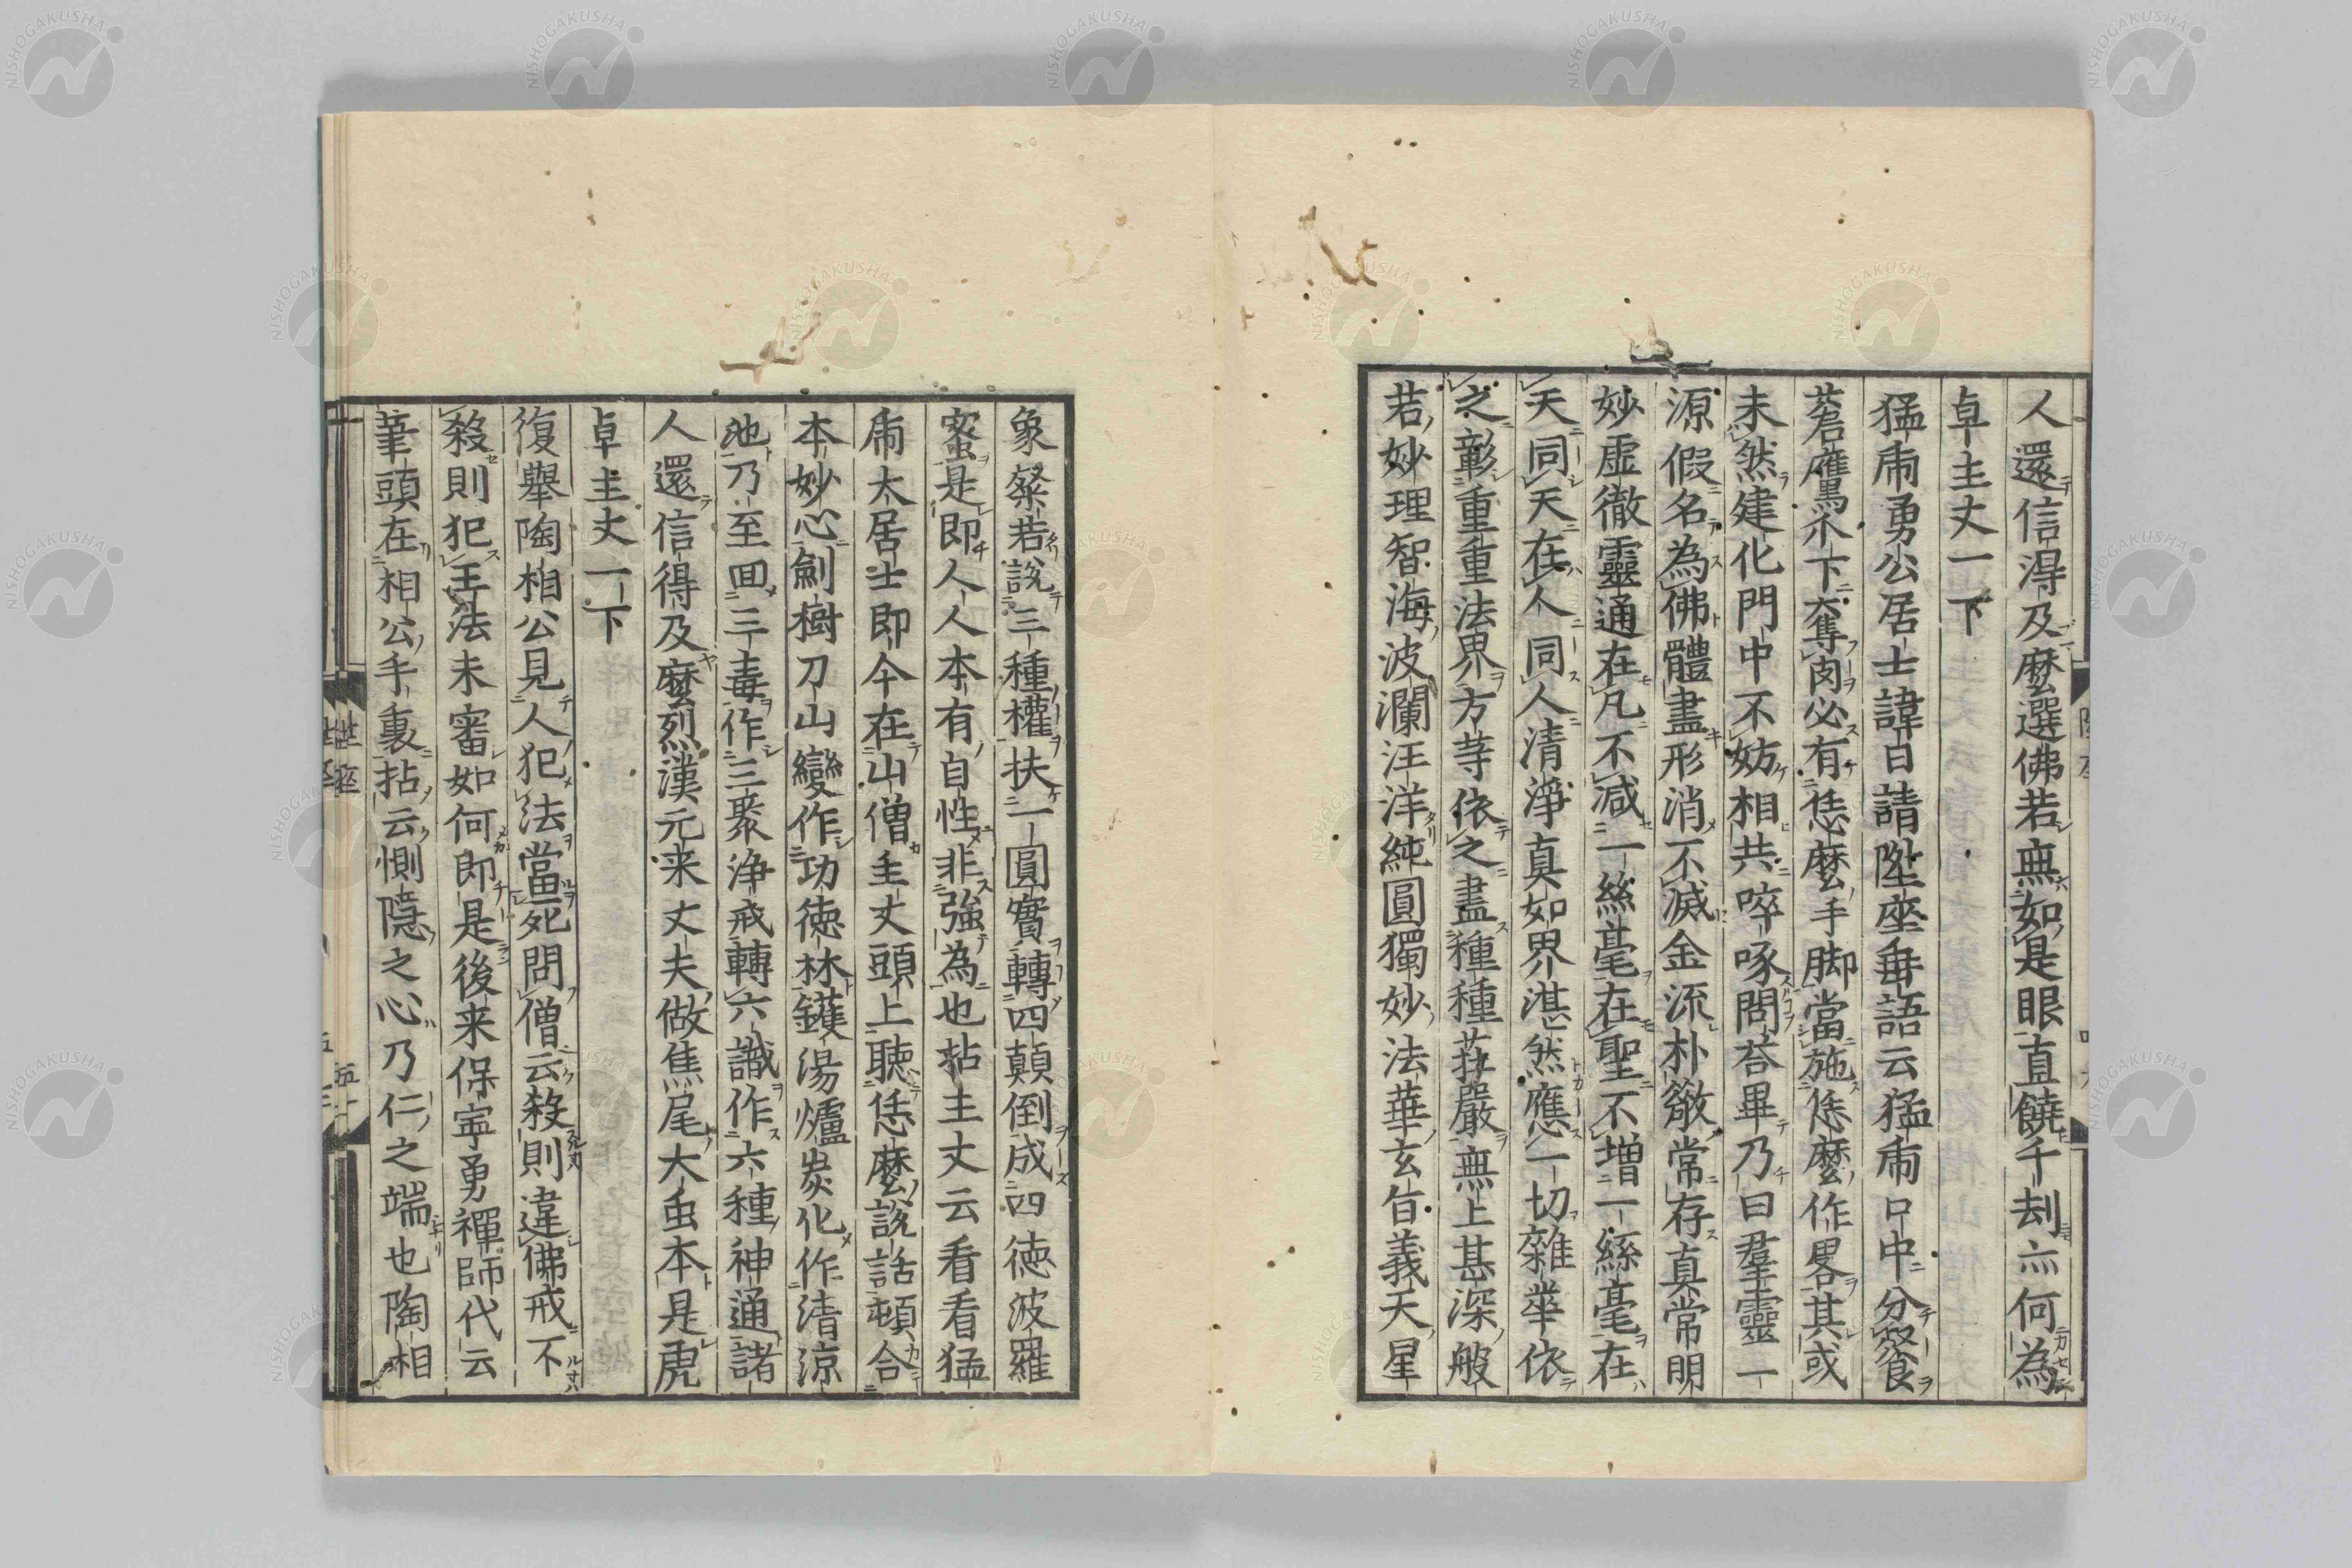 人還信得及麼選佛若無如是眼直饒千刼亦何為
卓主丈一下
猛乕勇公居士諱日請陞座垂語云猛乕口中分飧食
蒼鷹爪下奪肉必有恁麼手脚當施恁麼作畧其或
未然建化門中不妨相共啐啄問荅畢乃曰羣靈一
源假名為佛體盡形消不滅金流朴散常存真常明
妙虛徹靈通在凡不減一絲毫在聖不增一絲毫在
天同天在人同人清淨真如界湛然應一切雜華依
之彰重重法界方等依之盡種種莊嚴無上甚深般
若妙理智海波瀾汪洋純圓獨妙法華玄旨義天星
象粲若說三種權扶一圓實轉四顛倒成四徳波羅
蜜是即人人本有自性非強為也拈主丈云看看猛
乕太居士即今在山僧主丈頭上聴恁麼說話頓合
本妙心劍樹刀山變作功徳林鑊湯爐炭化作清涼
池乃至回三毒作三聚淨戒轉六識作六種神通諸
人還信得及麼烈漢元来丈夫做焦尾大虫本是虎
卓主丈一下
復舉陶相公見人犯法當死問僧云殺則違佛戒不
殺則犯王法未審如何即是後来保寧勇禪師代云
筆頭在相公手裏拈云惻隱之心乃仁之端也陶相
陞座
五十